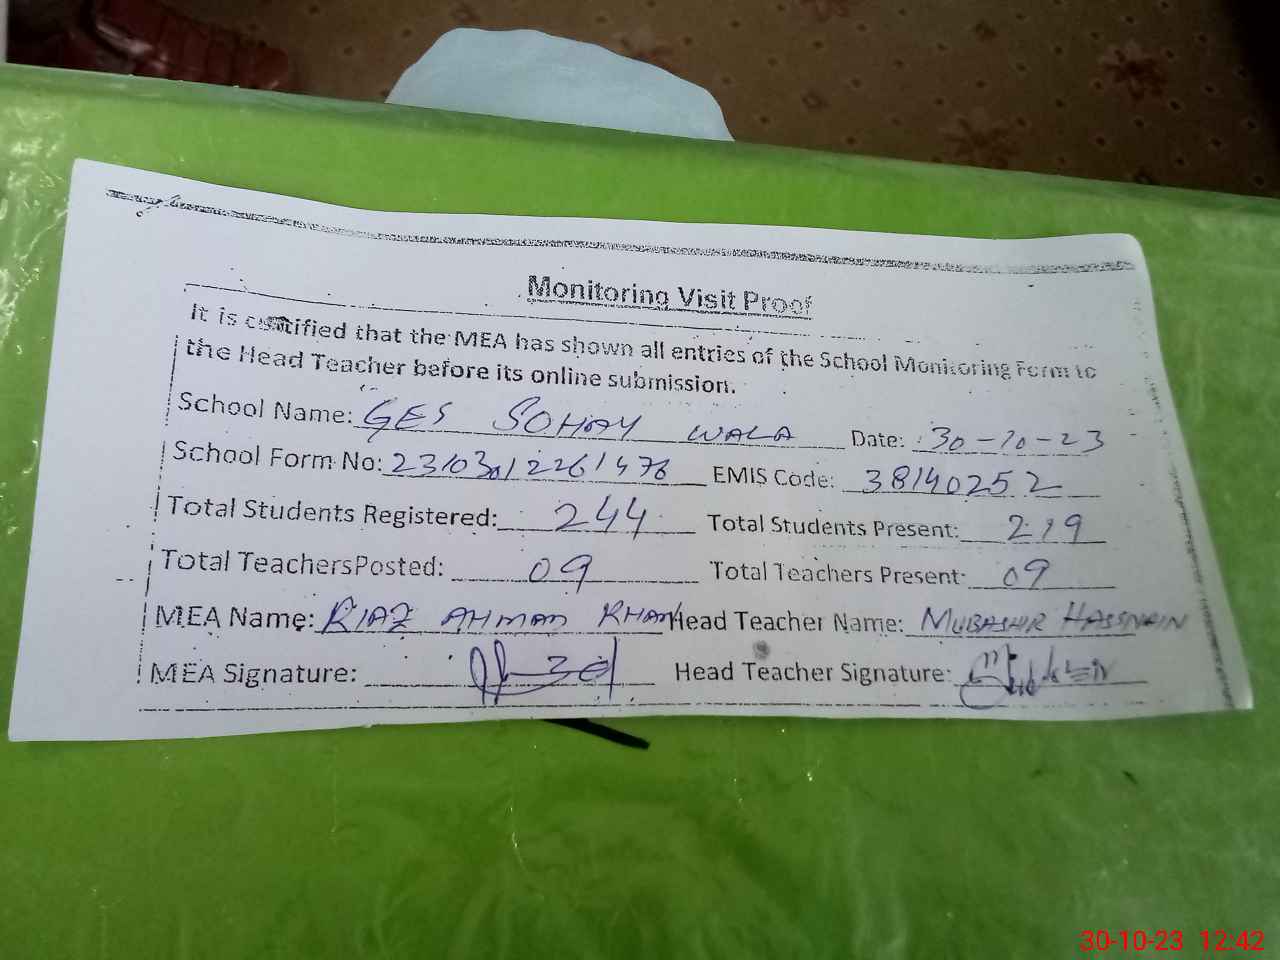 Monitoring Visit Proof
It is certified that the MEA has shown all entries of the School Monitoring Form to
the Head Teacher before its online submission.
School Name: GES SOHAY WALA Date: 30-10-23
School Form No: 231030122261478 EMIS Code: 38140252
Total Students Registered: 244 Total Students Present: 219
Total TeachersPosted: 09 Total Teachers Present: 09
MEA Name: RIAZ AHMAD KHAN Head Teacher Name: MUBASHIR HASSNAIN
MEA Signature: Head Teacher Signature:
30-10-23 12:42